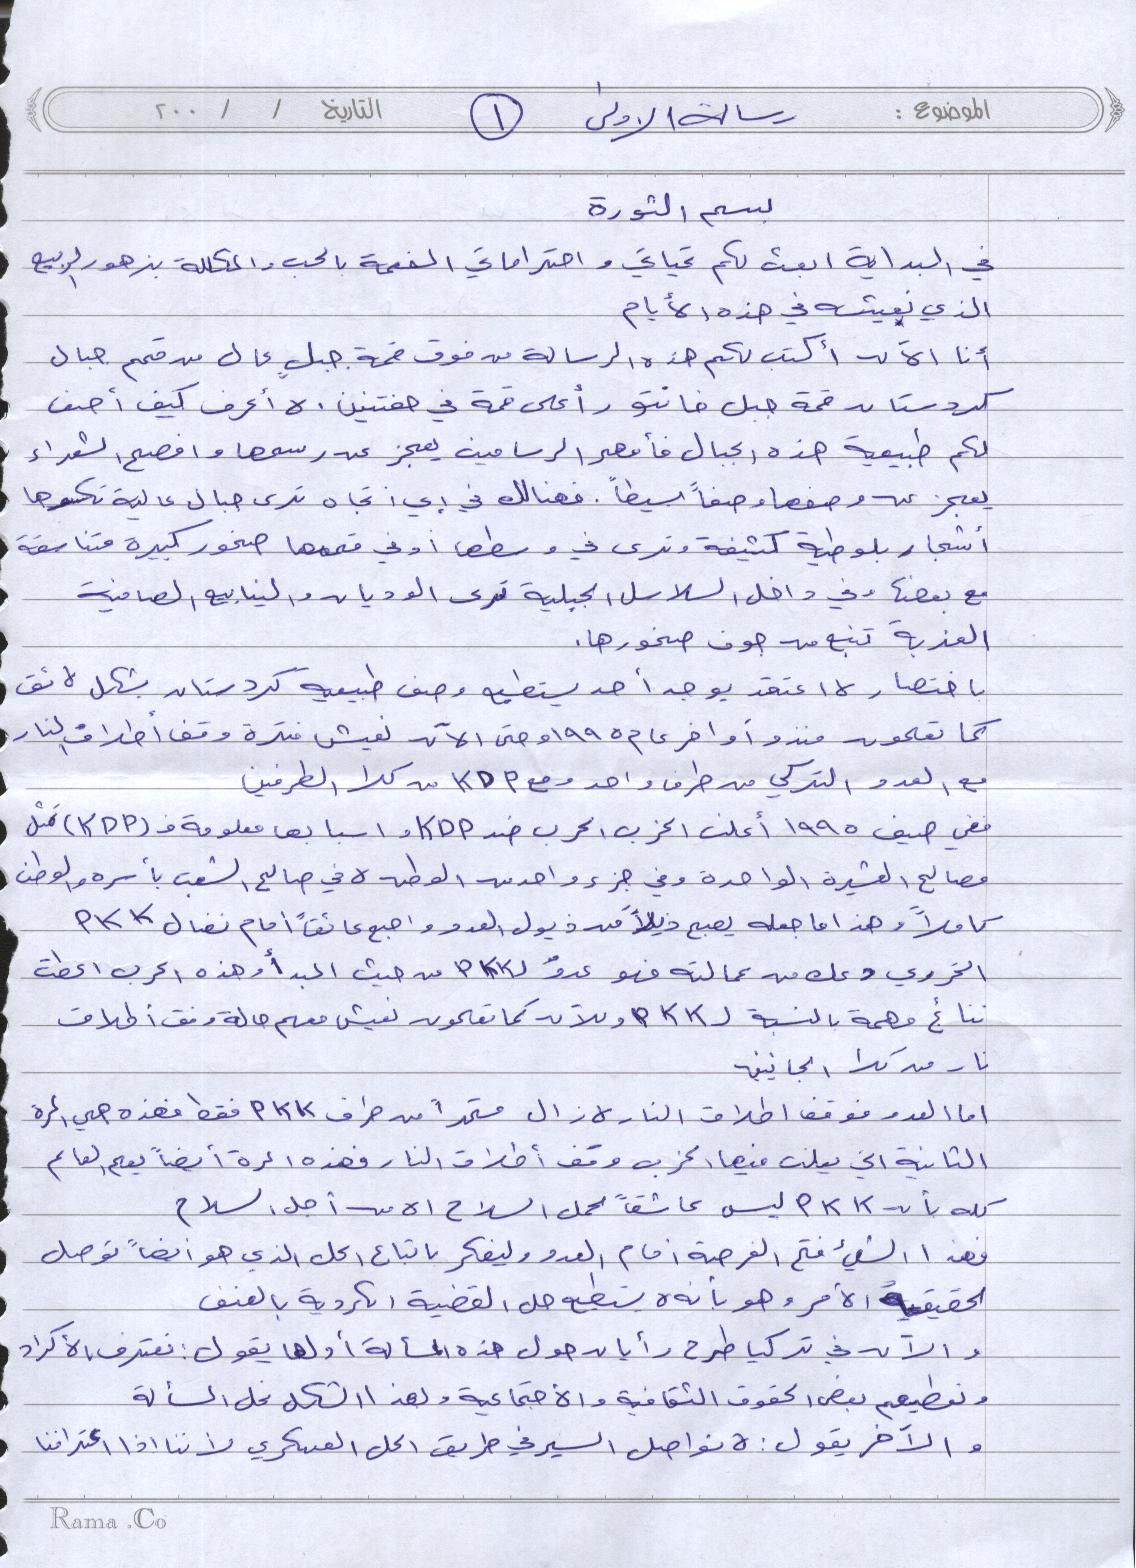 الموضوع : رسالة الاولى ١ التاريخ / / ٢٠٠
بسم الثورة
في البداية ابعث لكم تحياتي و احتراماتي المفعمة بالحب والمكللة بزهور الربيع
الذي نعيشه في هذه الأيام
أنا الآن أكتب لكم هذه الرسالة من فوق قمة جبلٍ عال من قمم جبال
كردستان قمة جبل خانتور أعلى قمة في حفتنين ، لا أعرف كيف أصف
لكم طبيعية هذه الجبال فأمهر الرسامين يعجز عن رسمها وافصح الشعراء
يعجز عن وصفها وصفاً بسيطاً . فهنالك في إي اتجاه ترى جبال عالية تكسوها
أشجار بلوطية كثيفة وترى في وسطها أو في قممها صخور كبيرة متناسقة
مع بعضها وفي داخل السلاسل الجبلية ترى الوديان والينابيع الصافية
العذبة تنبع من جوف صخورها .
باختصار لا اعتقد يوجد أحد يستطيع وصف طبيعية كردستان بشكل لائق
كما تعلمون منذو أواخر عام ١٩٩٥ وحتى الآن نعيش فترة وقف أطلاق النار
مع العدو التركي من طرف واحد ومع KDP من كلا الطرفين
ففي صيف ١٩٩٥ أعلن الحزب الحرب ضد KDP و اسبابها معلومة فـ (KDP) تمثل
مصالح العشيرة الواحدة وفي جزء واحد من الوطن لا في صالح الشعب بأسره والوطن
كاملاً وهذا ما جعله يصبح ذيلاً من ذيول العدو واصبح عائقاً أمام نضال PKK
الثوروي دعك من عمالته فهو عدوٌ لـ PKK من حيث المبدأ وهذه الحرب اعطت
نتائج مهمة بالنسبة لـ PKK وللآن كما تعلمون نعيش معهم حالة وقف أطلاق
نار من كلا الجانبين
اما العدو فوقف اطلاق النار لازال مستمراً من طرف PKK فقط فهذه هي المرة
الثانية التي يعلن فيها الحزب وقف أطلاق النار فهذه المرة أيضاً يعلم العالم
كله بأن PKK ليس عاشقاً لحمل السلاح إلا من أجل السلاح
فهذا الشيئ فتح الفرصة امام العدو وليفكر باتباع الحل الذي هو أيضاً توصل
لحقيقية الأمر وهو بأنه لا يستطيع حل القضية الكردية بالعنف
والآن في تركيا طرح رأيان حول هذه المسألة أولها يقول : نعترف بالأكراد
ونعطيهم بعض الحقوق الثقافية والأجتماعية وبهذا الشكل نحل المسألة
والآخر يقول : لا نواصل السير في طريق الحل العسكري لأننا اذا اعترافنا
Rama .Co